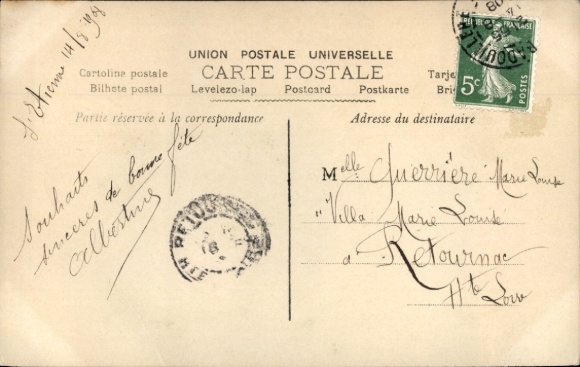 St Etienne 14/8 1908
UNION POSTALE UNIVERSELLE
CARTE POSTALE
Cartolina postale
Bilhete postal
Levelezo-lap
Postcard
Postkarte
Tarje
Bri
Partie réservée à la correspondance
Adresse du destinataire
REPUBLIQUE FRANÇAISE
5c
POSTES
Souhaits
sincères de bonne fête
Albertine
Melle Guerrière Marie Louise
"Villa Marie Louise
à Retournac
Hte Loire
RETOU